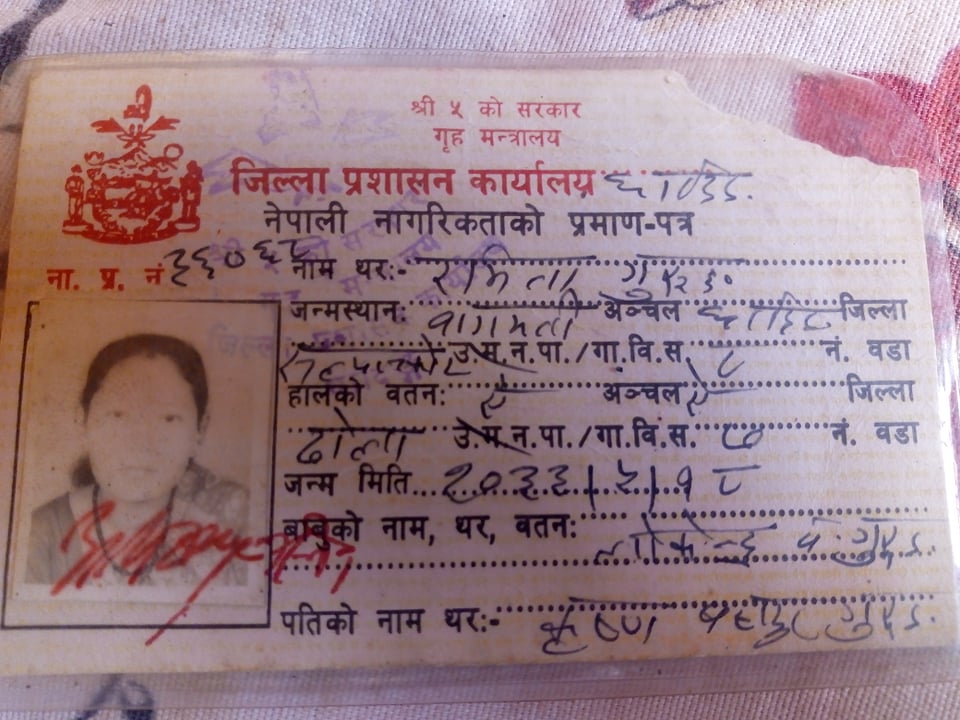 श्री ५ को सरकार
गृह मन्त्रालय
जिल्ला प्रशासन कार्यालय धादिङ
नेपाली नागरिकताको प्रमाण-पत्र
ना. प्र. नं ३६०६८ नाम थर:- रामिता गुरुङ
जन्मस्थान: वागमती अञ्चल धादिङ जिल्ला
उ.म.न.पा./गा.वि.स. ८ नं. वडा
हालको वतन: ऐ अञ्चल ऐ जिल्ला
ढोला उ.म.न.पा./गा.वि.स. ७ नं. वडा
जन्म मिति २०३३।५।१८
बाबुको नाम, थर, वतन:
लोकेन्द्र व. गुरुङ
पतिको नाम थर:- कृष्ण बहादुर गुरुङ